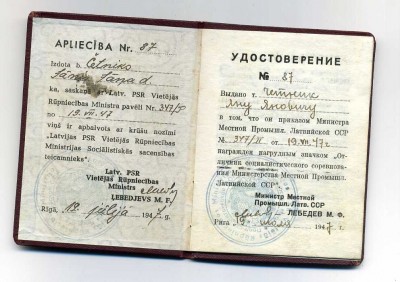 APLIECĪBA Nr. 87
Izdota b. Četniko
Jānis Jāņa d.
ka, saskaņā ar Latv. PSR Vietējās
Rūpniecības Ministra pavēli Nr. 347/П
no 19. VII. 47
viņš ir apbalvots ar krūšu nozīmi
„Latvijas PSR Vietējās Rūpniecības
Ministrijas Sociālistiskās sacensības
teicamnieks"
Latv. PSR
Vietējās Rūpniecības
Ministrs
LEBEDJEVS M. F.
Rīgā, 19. jūlijā 1947. g.
УДОСТОВЕРЕНИЕ
№ 87
Выдано т. Четник
Яну Яновичу
в том, что он приказом Министра
Местной Промышл. Латвийской ССР
№ 347/П от 19. VII 47 г.
награжден нагрудным значком "От-
личник социалистического соревнова-
ния Министерства Местной Промышл.
Латвийской ССР"
Министр Местной
Промышл. Латв. ССР
ЛЕБЕДЕВ М. Ф.
Рига 19 июля 1947 г.